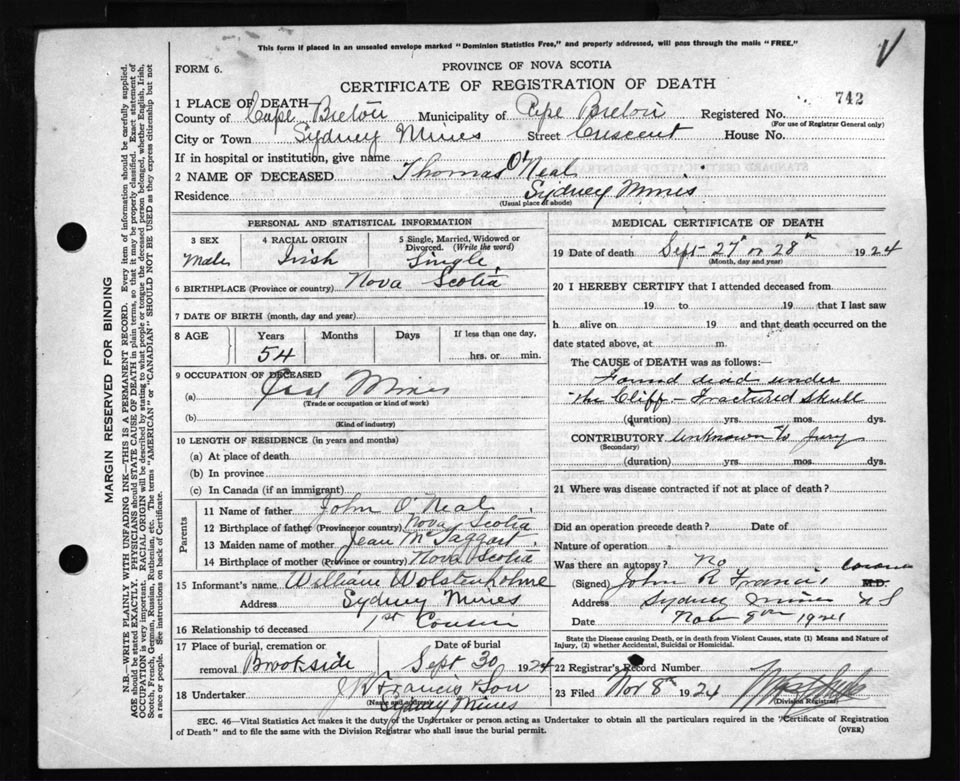 This form if placed in an unsealed envelope marked "Dominion Statistics Free," and properly addressed, will pass through the mails "FREE."
FORM 6.
PROVINCE OF NOVA SCOTIA
CERTIFICATE OF REGISTRATION OF DEATH
742
1 PLACE OF DEATH
County of Cape Breton Municipality of Cape Breton Registered No.
(For use of Registrar General only)
City or Town Sydney Mines Street Crescent House No.
If in hospital or institution, give name
2 NAME OF DECEASED Thomas O'Neal
Residence Sydney Mines
(Usual place of abode)
PERSONAL AND STATISTICAL INFORMATION
3 SEX Male
4 RACIAL ORIGIN Irish
5 Single, Married, Widowed or Divorced. (Write the word) Single
6 BIRTHPLACE (Province or country) Nova Scotia
7 DATE OF BIRTH (month, day and year)
8 AGE Years Months Days If less than one day,
54 hrs. or min.
9 OCCUPATION OF DECEASED
(a) Coal Miner
(Trade or occupation or kind of work)
(b)
(Kind of industry)
10 LENGTH OF RESIDENCE (in years and months)
(a) At place of death
(b) In province
(c) In Canada (if an immigrant)
Parents
11 Name of father John O'Neal
12 Birthplace of father (Province or country) Nova Scotia
13 Maiden name of mother Jean McTaggart
14 Birthplace of mother (Province or country) Nova Scotia
15 Informant's name William Wolstenholme
Address Sydney Mines
16 Relationship to deceased 1st Cousin
17 Place of burial, cremation or removal Brookside
Date of burial Sept 30 1924
18 Undertaker J R Francis & Son
(Name and address)
Sydney Mines
MEDICAL CERTIFICATE OF DEATH
19 Date of death Sept 27th or 28th 1924
(Month, day and year)
20 I HEREBY CERTIFY that I attended deceased from
19 to 19 that I last saw
h alive on 19 and that death occurred on the
date stated above, at m.
The CAUSE of DEATH was as follows:
Found dead under
the Cliff - Fractured skull
(duration) yrs. mos. dys.
CONTRIBUTORY Unknown to Jury
(Secondary)
(duration) yrs. mos. dys.
21 Where was disease contracted if not at place of death?
Did an operation precede death? Date of
Nature of operation
Was there an autopsy? No
(Signed) John R Francis Coroner M.D.
Address Sydney Mines N S
Date Nov 8th 1924
State the Disease causing Death, or in death from Violent Causes, state (1) Means and Nature of Injury, (2) whether Accidental, Suicidal or Homicidal.
22 Registrar's Record Number
23 Filed Nov 8th 1924
(Division Registrar)
SEC. 46—Vital Statistics Act makes it the duty of the Undertaker or person acting as Undertaker to obtain all the particulars required in the "Certificate of Registration
of Death" and to file the same with the Division Registrar who shall issue the burial permit.
(OVER)
MARGIN RESERVED FOR BINDING
N.B.—WRITE PLAINLY WITH UNFADING INK—THIS IS A PERMANENT RECORD. Every item of information should be carefully supplied.
AGE should be stated EXACTLY. PHYSICIANS should STATE CAUSE OF DEATH in plain terms, so that it may be properly classified. Exact statement of
OCCUPATION is very important. RACIAL ORIGIN will be described by stating to what people or tongue the deceased person belonged, whether English, Irish,
Scotch, French, German, Russian, Ruthenian, etc. The terms "AMERICAN" or "CANADIAN" SHOULD NOT BE USED as they express citizenship but not
a race or people. See instructions on back of Certificate.